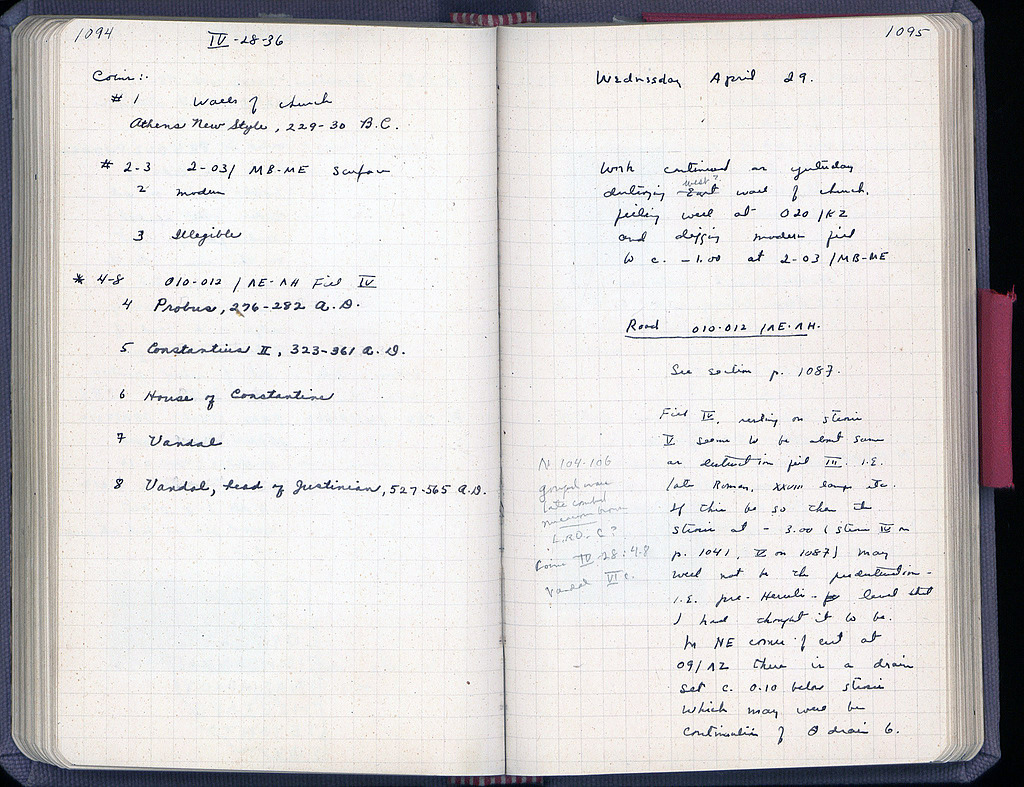 1094
IV-28-36
Coins:-
# 1 Walls of church
Athens New Style, 229-30 B.C.
# 2-3 2-03/ MB-ME surface
2 modern
3 Illegible
* 4-8 010-012 / ΛE-ΛH Fill IV
4 Probus, 276-282 A.D.
5 Constantius II, 323-361 A.D.
6 House of Constantine
7 Vandal
8 Vandal, head of Justinian, 527-565 A.D.
1095
Wednesday April 29.
Work continued as yesterday
west?
destroying East wall of church,
well at 020/KZ
and digging modern fill
to c. -1.00 at 2-03/MB-ME
Road 010-012 /ΛE-ΛH.
See section p. 1087.
Fill IV, resting on strosis
V seems to be about same
as destruction fill III. I.E.
late Roman, XXVIII lamps etc.
If this be so then the
strosis at - 3.00 (strosis IV on
p. 1041, V on 1087) may
well not be the
I.E. pre-Heruli- level that
I had thought it to be.
In NE corner of cut at
09/ΛZ there is a drain
set c. 0.10 below strosis
which may well be
continuation of drain 6.
N 104-106
gouged ware
late combed
L.RO. C?
Coins IV-28: 4-8
Vandal VI c.